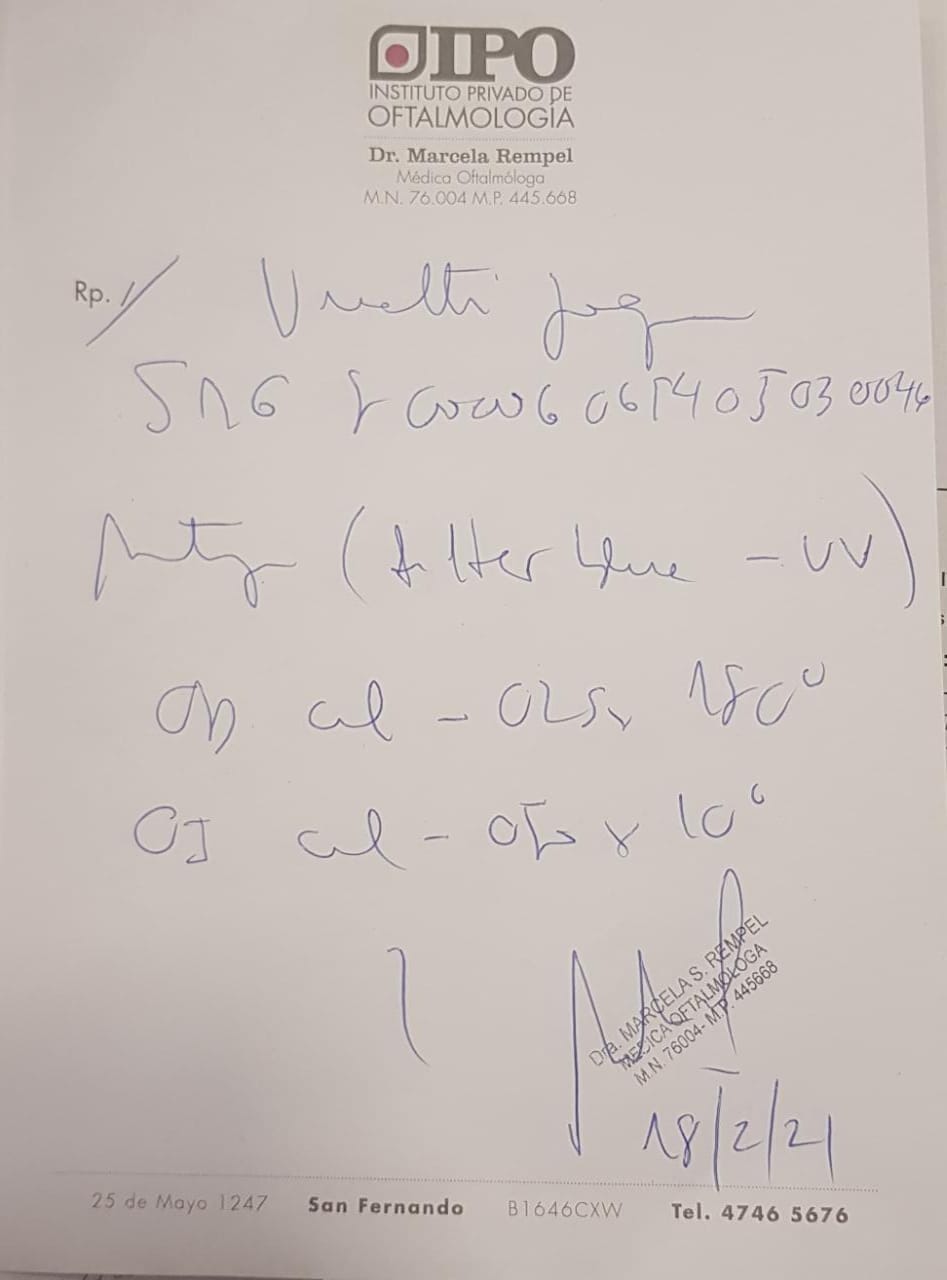 IPO
INSTITUTO PRIVADO DE
OFTALMOLOGÍA
Dr. Marcela Rempel
Médica Oftalmóloga
M.N. 76.004 M.P. 445.668
Rp. 1/
(filter blue - UV)
OD cil - 025 x 180°
OI cil - 050 x 10°
Dra. MARCELA S. REMPEL
MEDICA OFTALMOLOGA
M.N. 76004- M.P. 445668
18/2/21
25 de Mayo 1247 San Fernando B1646CXW Tel. 4746 5676